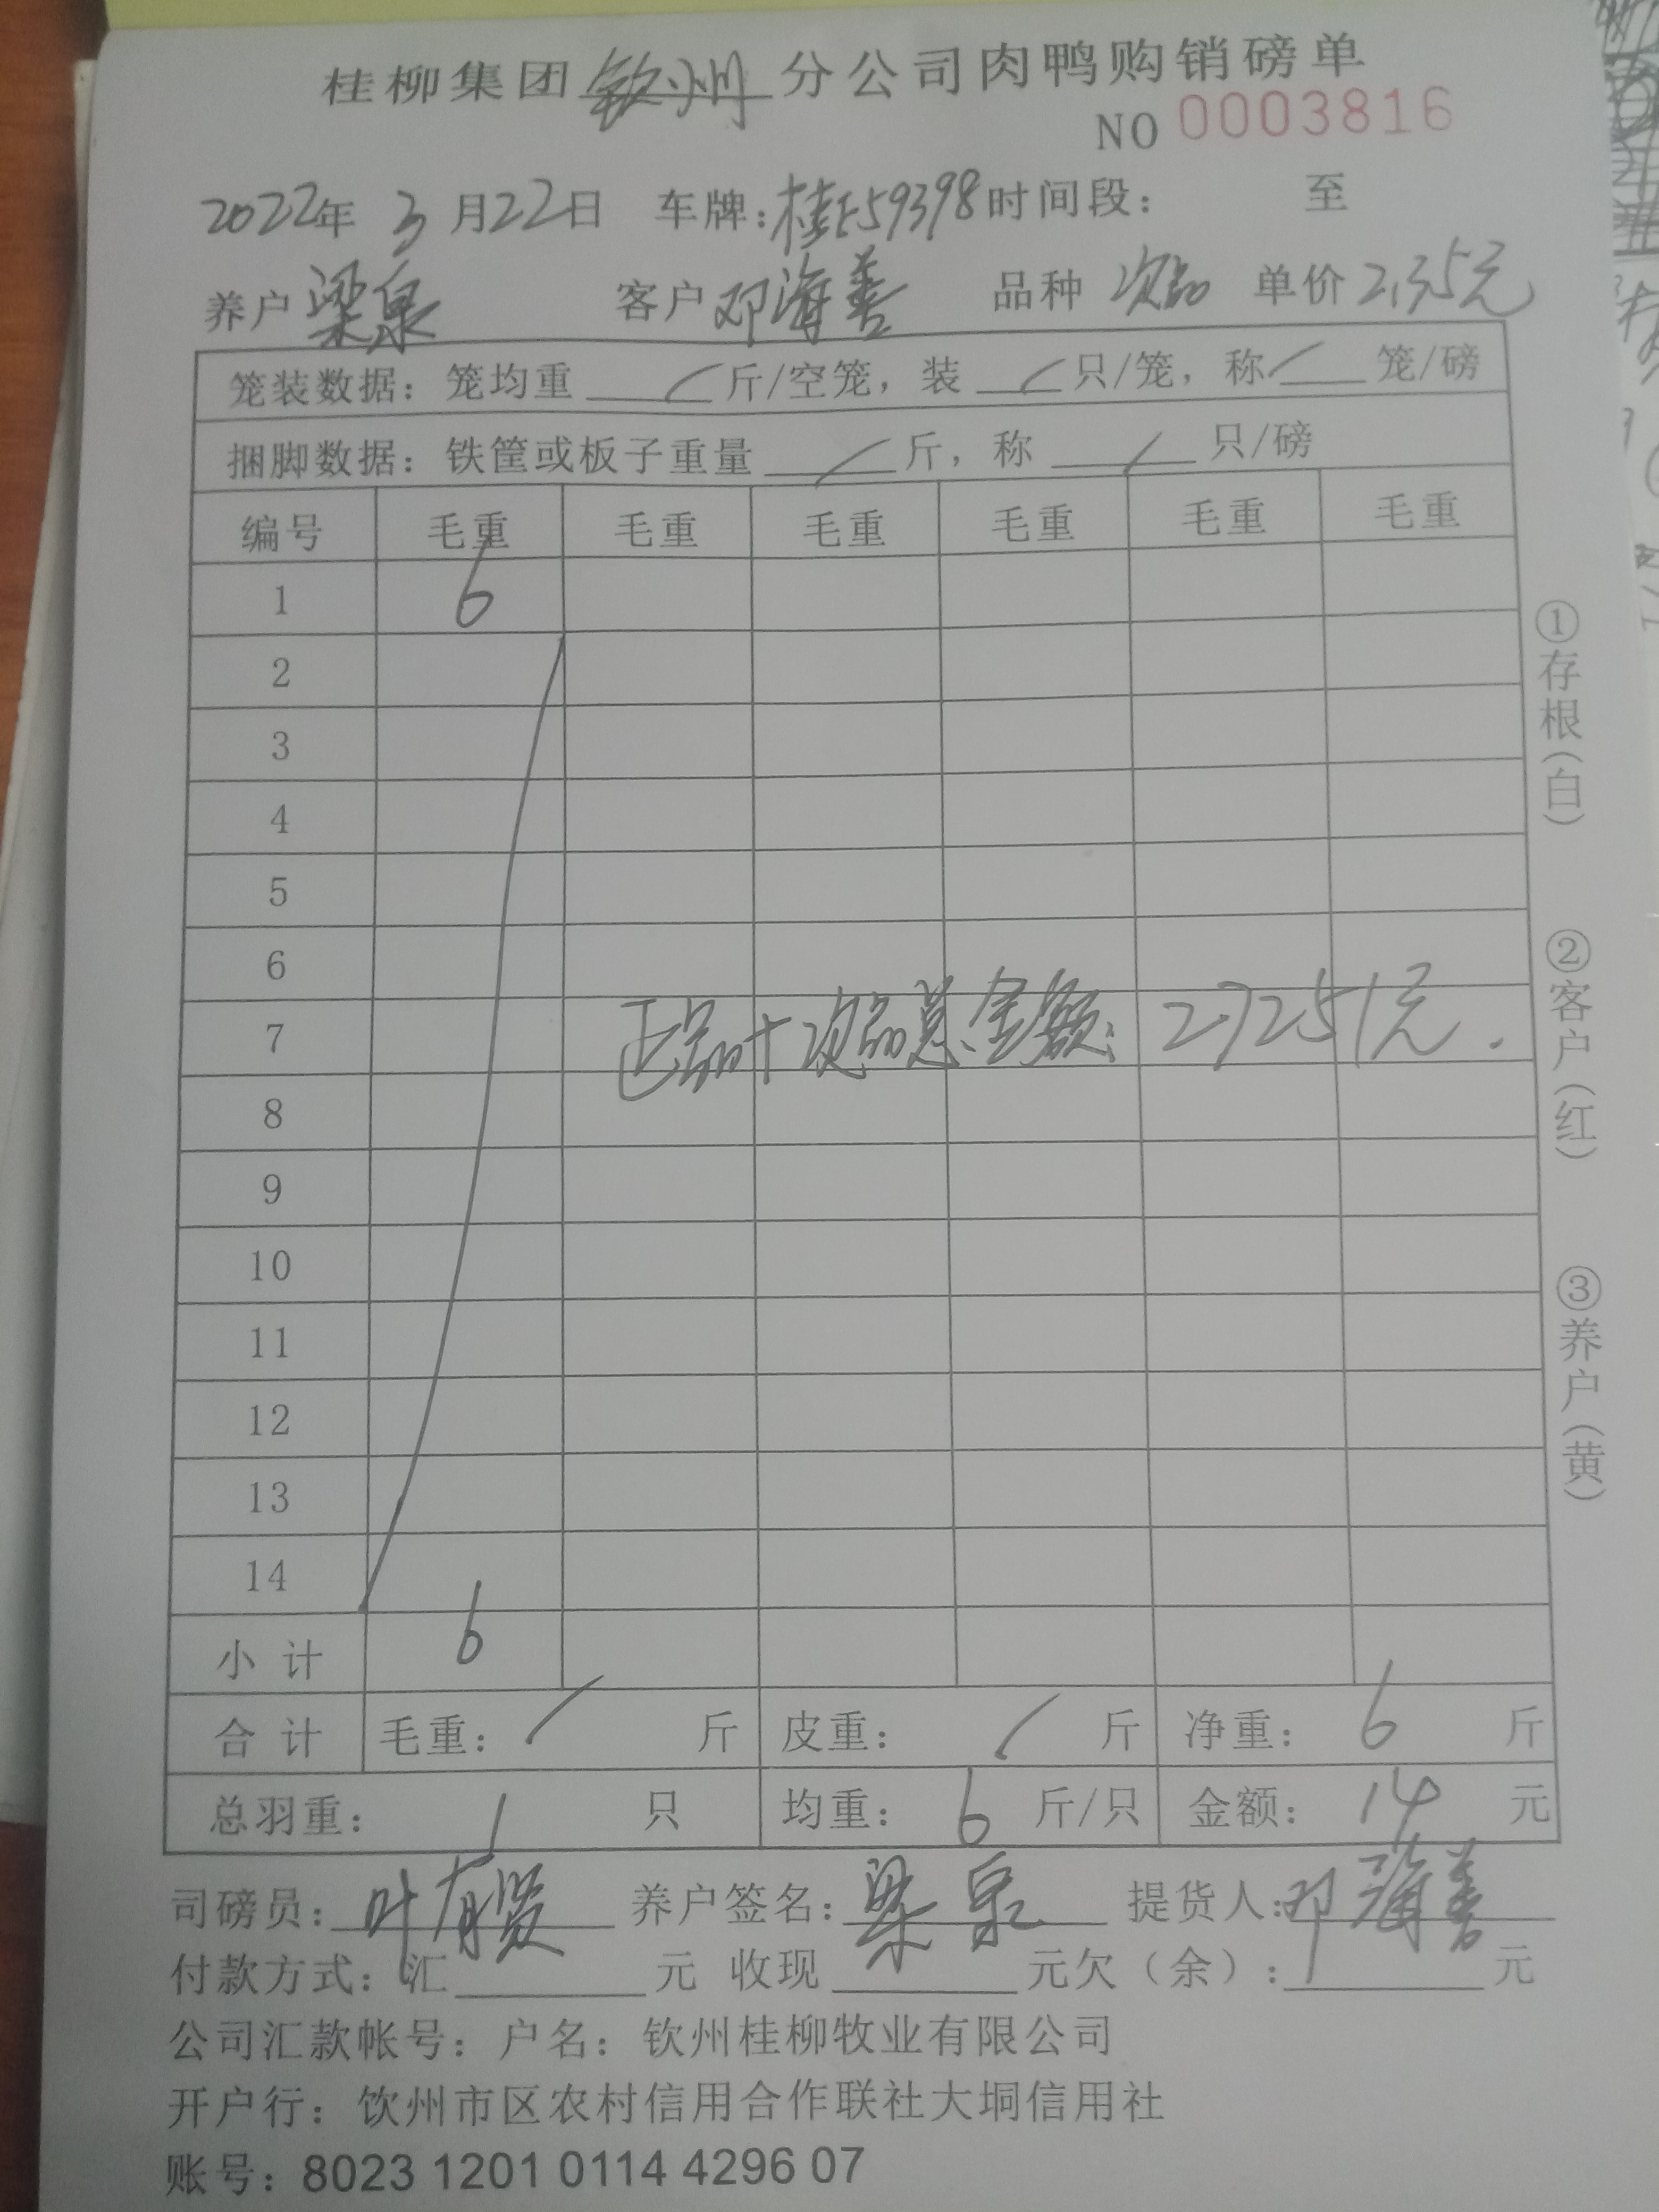 桂柳集团 钦州 分公司肉鸭购销磅单
NO 0003816
2022年 3 月22日 车牌:桂E59398 时间段: 至
养户 梁泉 客户 邓海善 品种 次品 单价 2.35元
笼装数据: 笼均重 / 斤/空笼, 装 / 只/笼, 称 / 笼/磅
捆脚数据: 铁筐或板子重量 / 斤, 称 / 只/磅
编号 毛重 毛重 毛重 毛重 毛重 毛重
1 6
2
3
4
5
6
7 正品+次品总金额: 27251元.
8
9
10
11
12
13
14
小计 6
合计 毛重: / 斤 皮重: / 斤 净重: 6 斤
总羽重: 1 只 均重: 6 斤/只 金额: 14 元
司磅员: 叶有贤 养户签名: 梁泉 提货人: 邓海善
付款方式: 汇 元 收现 元欠(余): 元
公司汇款帐号: 户名: 钦州桂柳牧业有限公司
开户行: 钦州市区农村信用合作联社大垌信用社
账号: 8023 1201 0114 4296 07
①存根(白)
②客户(红)
③养户(黄)